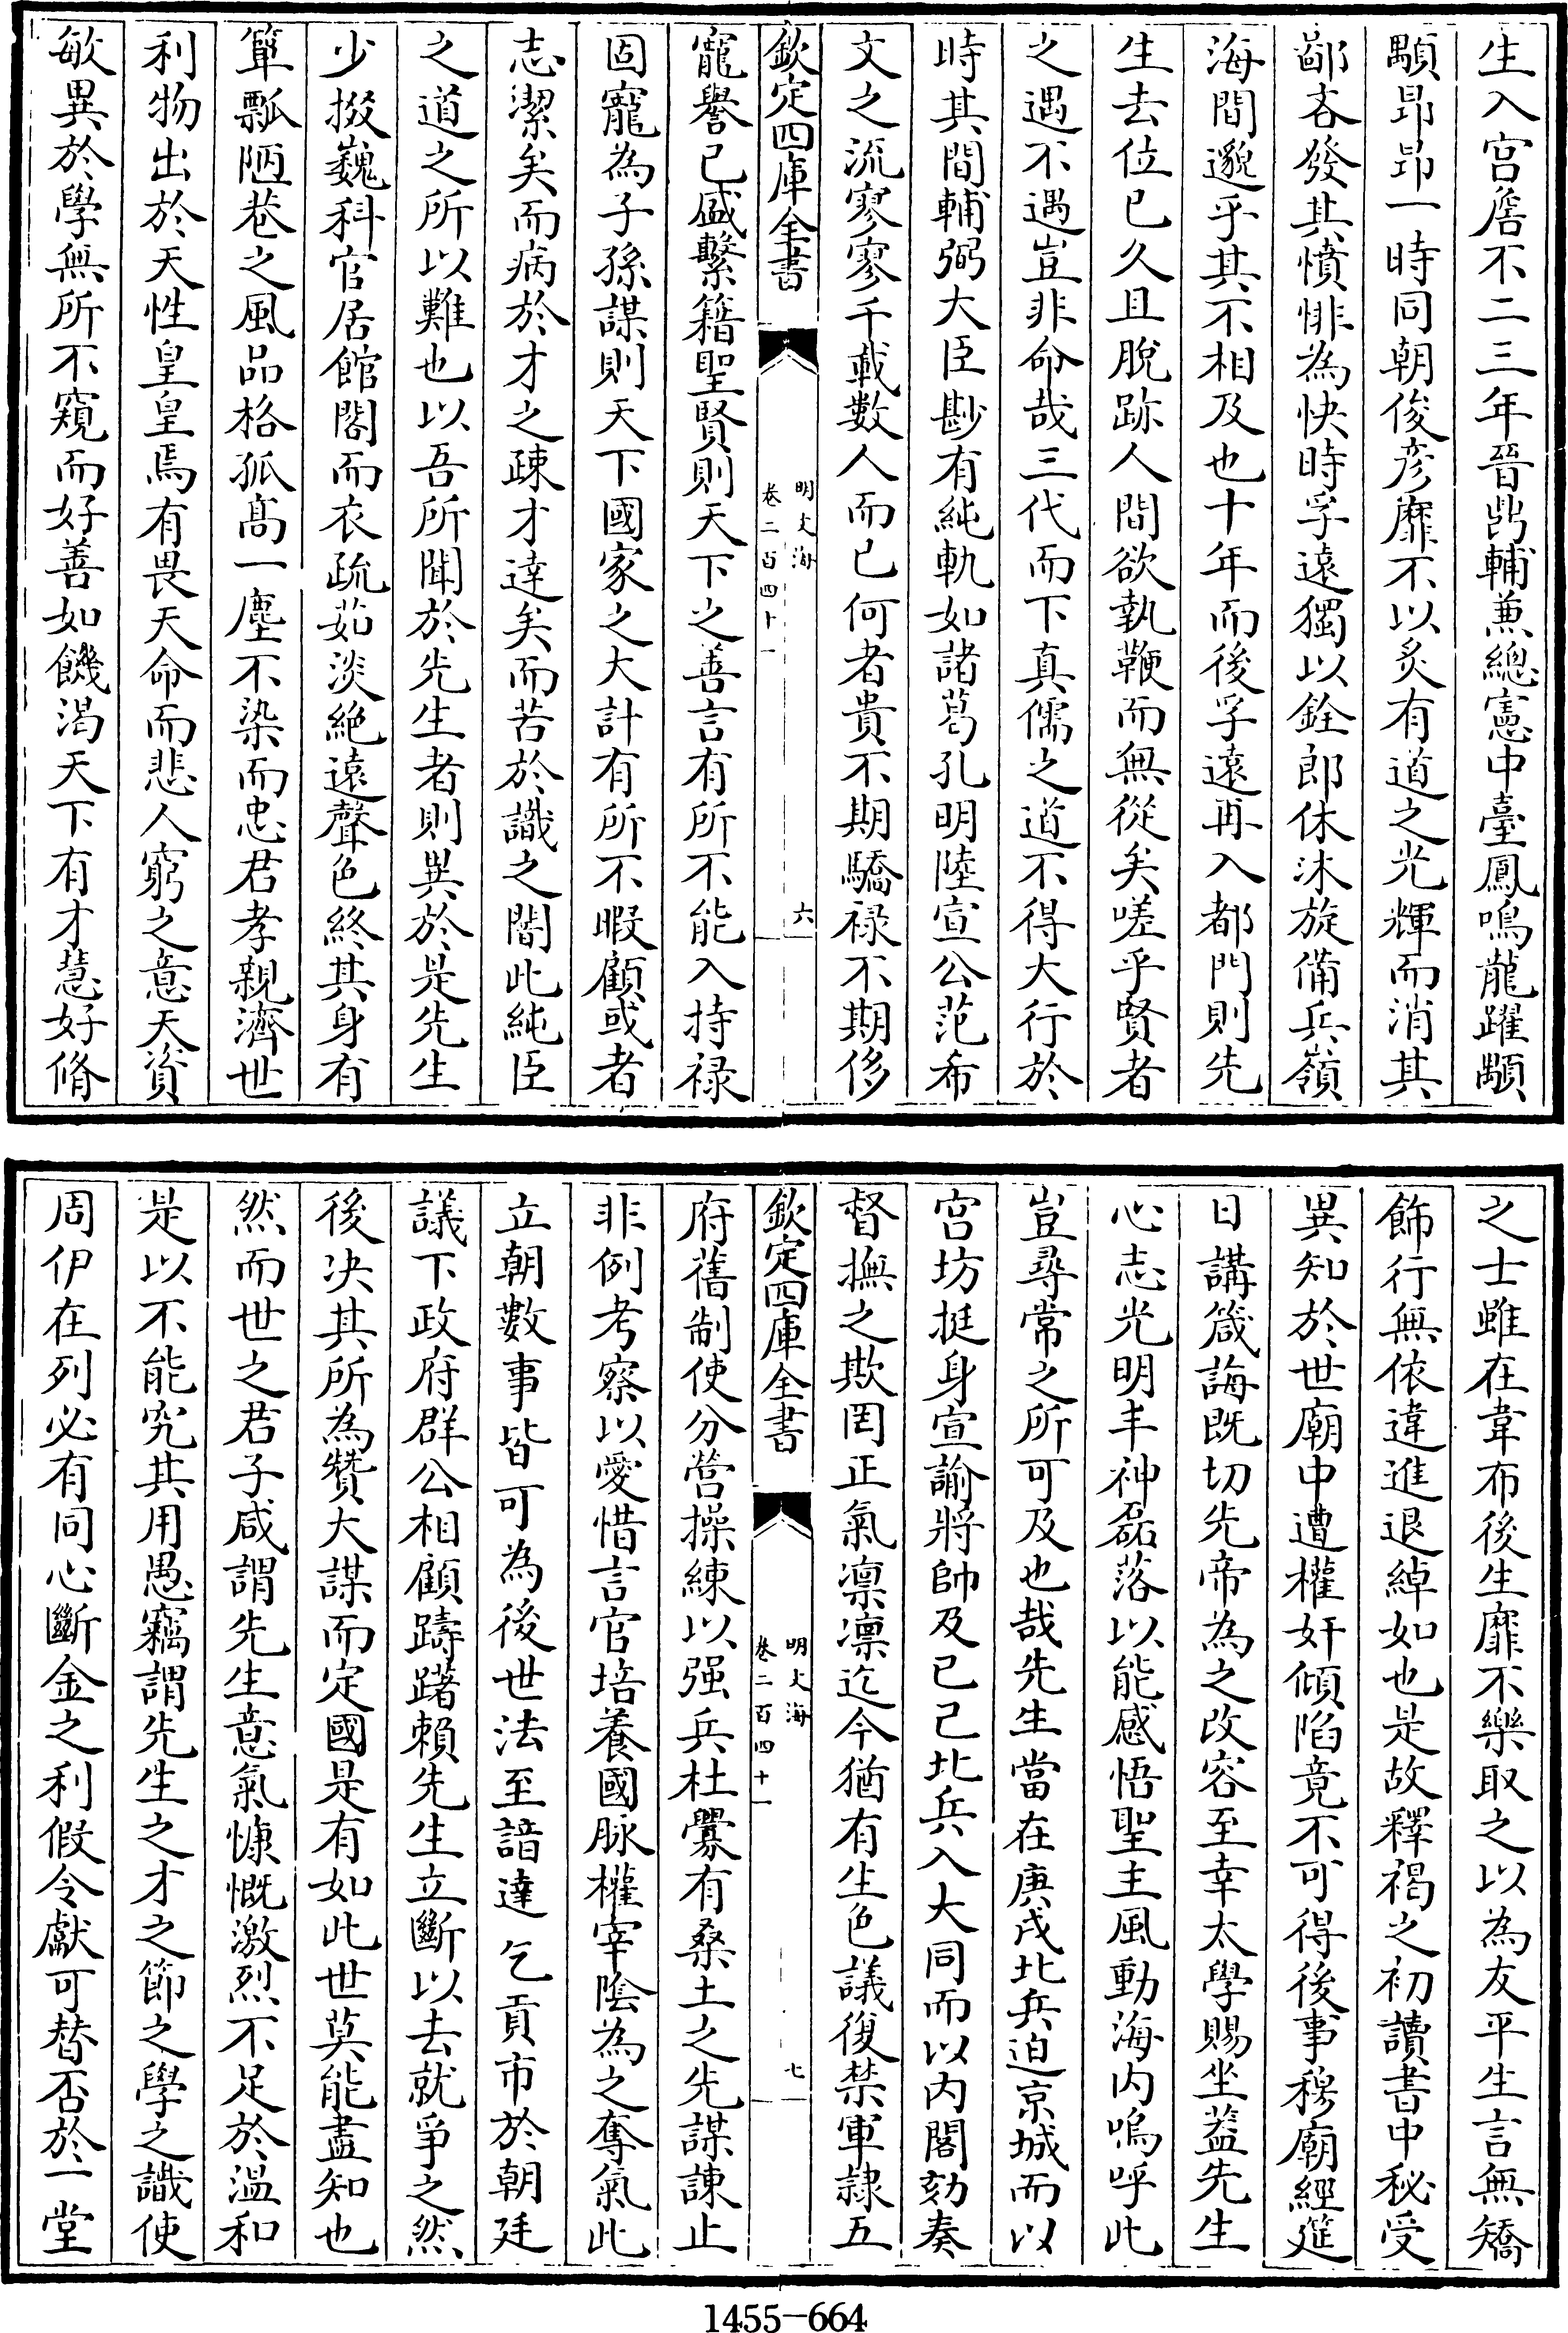 生入宫詹不二三年晉鼎輔兼總憲中臺鳳鳴龍躍顒
顒昻昻一時同朝俊彦靡不以炙有道之光輝而消其
鄙吝發其憤悱為快時孚遠獨以銓郎休沐旋備兵嶺
海間邈乎其不相及也十年而後孚遠再入都門則先
生去位已久且脫跡人間欲執鞭而無從矣嗟乎賢者
之遇不遇豈非命哉三代而下真儒之道不得大行於
時其間輔弼大臣尠有純軌如諸葛孔明陸宣公范希
文之流寥寥千載數人而已何者貴不期驕禄不期侈
欽定四庫全書
明文海
卷二百四十一
六
寵譽已盛繫籍聖賢則天下之善言有所不能入持禄
固寵為子孫謀則天下國家之大計有所不暇顧或者
志潔矣而病於才之疎才達矣而苦於識之闇此純臣
之道之所以難也以吾所聞於先生者則異於是先生
少掇巍科官居館閣而衣疏茹淡絶遠聲色終其身有
簞瓢陋巷之風品格孤髙一塵不染而忠君孝親濟世
利物出於天性皇皇焉有畏天命而悲人窮之意天資
敏異於學無所不窺而好善如饑渴天下有才慧好脩
之士雖在韋布後生靡不樂取之以為友平生言無矯
飾行無依違進退綽如也是故釋褐之初讀書中秘受
異知於世廟中遭權奸傾陷竟不可得後事穆廟經筵
日講箴誨既切先帝為之改容至幸太學賜坐葢先生
心志光明丰神磊落以能感悟聖主風動海内嗚呼此
豈尋常之所可及也哉先生當在庚戌北兵迫京城而以
宫坊挺身宣諭將帥及已己北兵入大同而以内閣劾奏
督撫之欺罔正氣凛凛迄今猶有生色議復禁軍隷五
欽定四庫全書
明文海
卷二百四十一
七
府舊制使分營操練以强兵杜釁有桑土之先謀諌止
非例考察以愛惜言官培養國脉權宰陰為之奪氣此
立朝數事皆可為後世法至諳達乞貢市於朝廷
議下政府群公相顧躊躇賴先生立斷以去就爭之然
後决其所為贊大謀而定國是有如此世莫能盡知也
然而世之君子咸謂先生意氣慷慨激烈不足於溫和
是以不能究其用愚竊謂先生之才之節之學之識使
周伊在列必有同心斷金之利假令獻可替否於一堂
1455-664